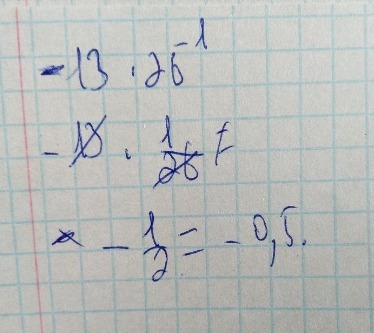 -13 · 26⁻¹
-13 · 1/26 =
= - 1/2 = - 0,5.